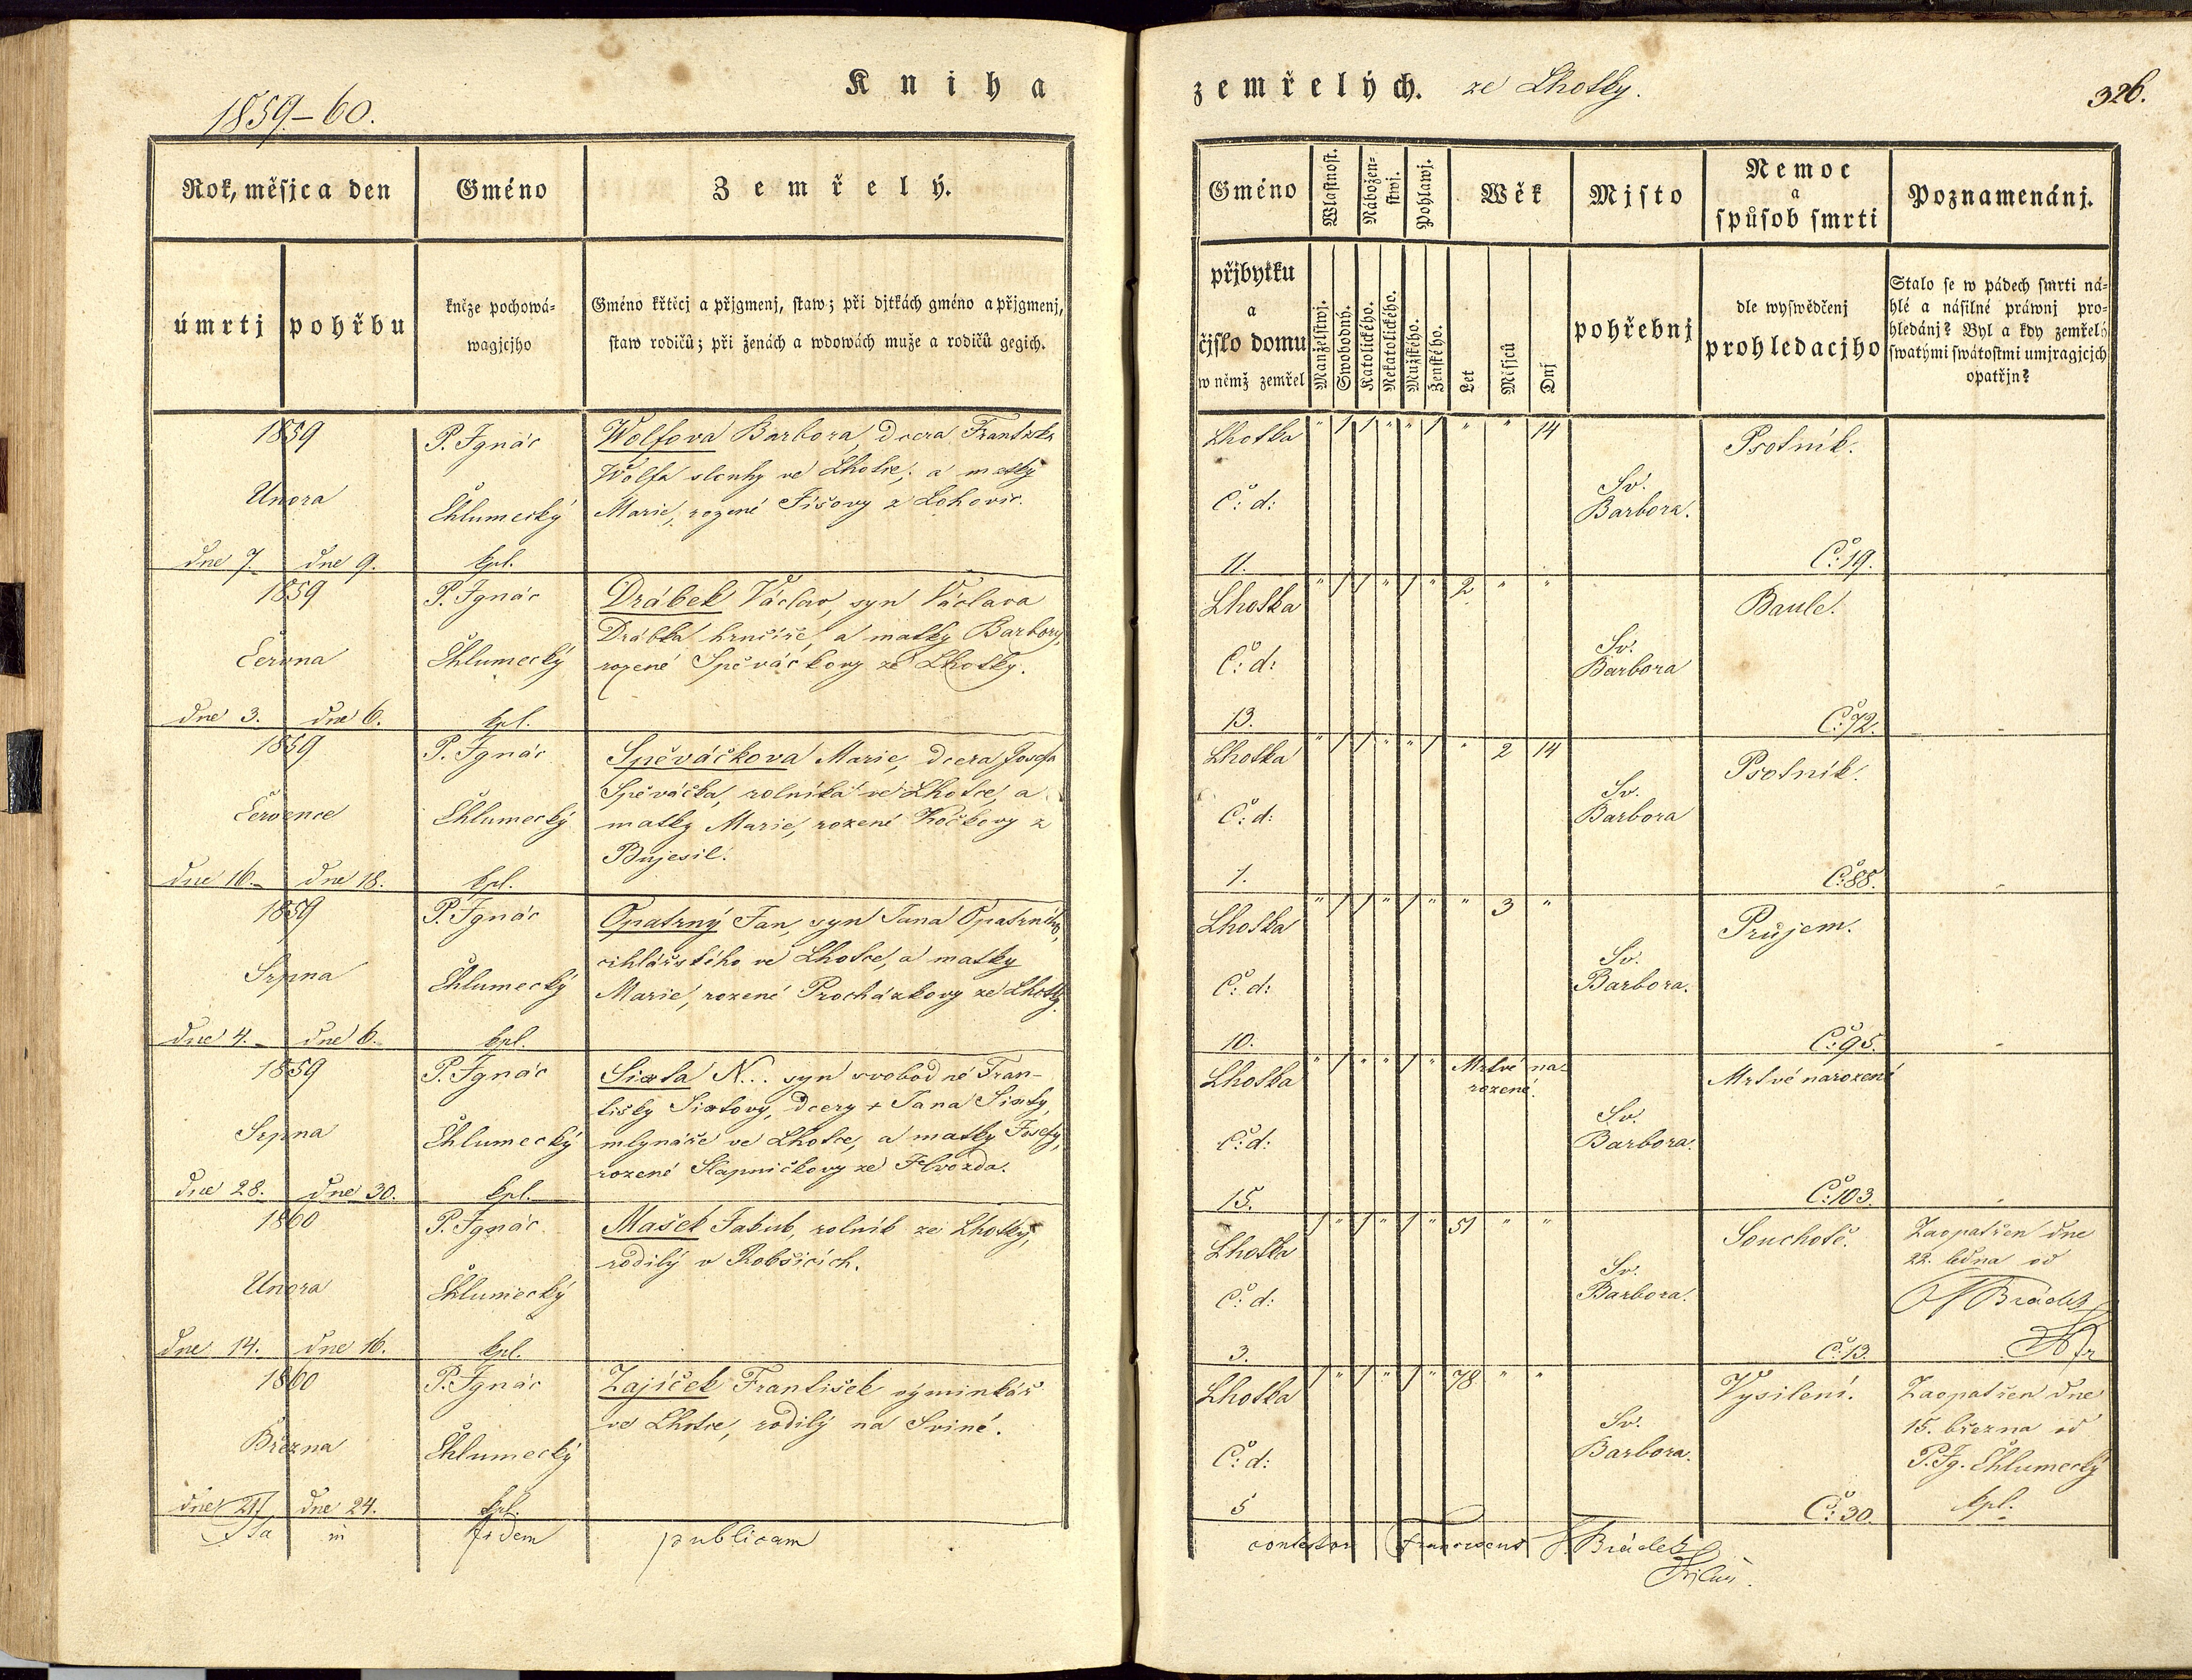 1859–60.
Kniha
Rok, měsjc a den
Gméno
Zemřelý.
úmrtj
pohřbu
kněze pochowá-
wagjcjho
Gméno křtěcj a přjgmenj, staw; při djtkách gméno a přjgmenj,
staw rodičů; při ženách a wdowách muže a rodičů gegich.
1859
Února
dne 7. dne 9.
P. Ignác
Chlumecký
kpl.
Wolfova Barbora, dcera Františka
Wolfa slouhy ve Lhotce, a matky
Marie, rozené Fišovy z Lohovic.
1859
Června
dne 3. dne 6.
P. Ignác
Chlumecký
kpl.
Drábek Václav, syn Václava
Drábka hrnčíře, a matky Barbory,
rozené Spěváčkovy ze Lhotky.
1859
Července
dne 16. dne 18.
P. Ignác
Chlumecký
kpl.
Spěváčkova Marie, dcera Josefa
Spěváčka, rolníka ve Lhotce, a
matky Marie, rozené Kočkovy z
Bujesil.
1859
Srpna
dne 4. dne 6.
P. Ignác
Chlumecký
kpl.
Opatrný Jan, syn Jana Opatrného,
cihlářského ve Lhotce, a matky
Marie, rozené Procházkovy ze Lhotky.
1859
Srpna
dne 28. dne 30.
P. Ignác
Chlumecký
kpl.
Sixta N... syn svobodné Fran-
tišky Sixtovy, dcery + Jana Sixty,
mlynáře ve Lhotce, a matky Josefy,
rozené Slapničkovy ze Hvozda.
1860
Února
dne 14. dne 16.
P. Ignác
Chlumecký
kpl.
Mašek Jakub, rolník ze Lhotky,
rodilý v Robšicích.
1860
Března
dne 21. dne 24.
P. Ignác
Chlumecký
kpl.
Zajíček František výminkář
ve Lhotce, rodilý na Sviné.
Ita in fidem publicam
zemřelých. ze Lhotky.
326.
Gméno
Wlastnost.
Nábožen-
stwj.
Pohlawj.
Wěk
Mjsto
Nemoc
a
spůsob smrti
Poznamenánj.
přjbytku
a
čjslo domu
w němž zemřel
Manželstwj.
Swobodný.
Katolického.
Nekatolického.
Mužského.
Ženského.
Let
Měsjců
Dnj
pohřebnj
dle wyswědčenj
prohledacjho
Stalo se w pádech smrti ná-
hlé a násilné práwnj pro-
hledánj? Byl a kdy zemřelý
swatými swátostmi umjragjcjch
opatřjn?
Lhotka " 1 1 " " 1 " " 14
Č: d:
11.
Sv.
Barbora.
Psotník.
Č: 19.
Lhotka " 1 1 " 1 " 2 " "
Č: d:
13.
Sv.
Barbora
Baule.
Č: 72.
Lhotka " 1 1 " " 1 " 2 14
Č: d:
1.
Sv.
Barbora
Psotník.
Č: 88.
Lhotka " 1 1 " 1 " " 3 "
Č: d:
10.
Sv.
Barbora.
Průjem.
Č: 95.
Lhotka " 1 " " 1 " Mrtvé na-
rozené.
Č: d:
15.
Sv.
Barbora.
Mrtvé narozené
Č: 103.
Lhotka 1 " 1 " 1 " 51 " "
Č: d:
3.
Sv.
Barbora.
Souchotě.
Č: 13.
Zaopatřen dne
22. ledna od
Brádek
Lhotka 1 " 1 " 1 " 78 " "
Č: d:
5
Sv.
Barbora.
Vysilení.
Č: 30.
Zaopatřen dne
15. března od
P. Ig. Chlumecký
kpl.
contestor Franciscus Brádek